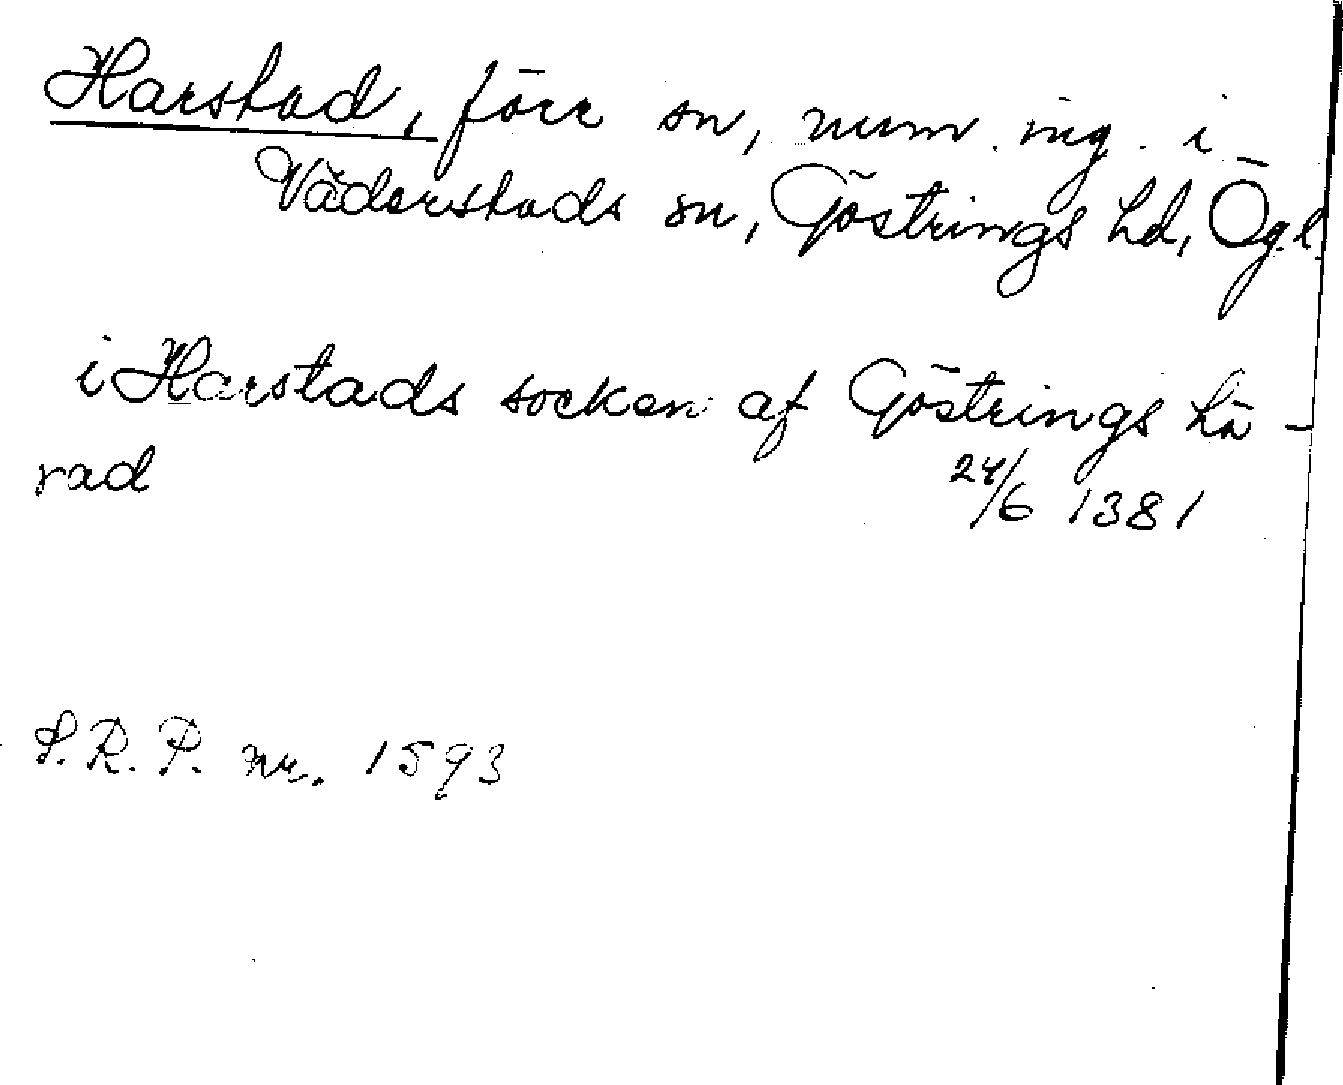 Harstad, förr sn, num. ing. i
Väderstads sn, Göstrings hd, Ögl.
i Harstads socken af Göstrings hä-
rad
24/6 1381
S.R.P. nr. 1593